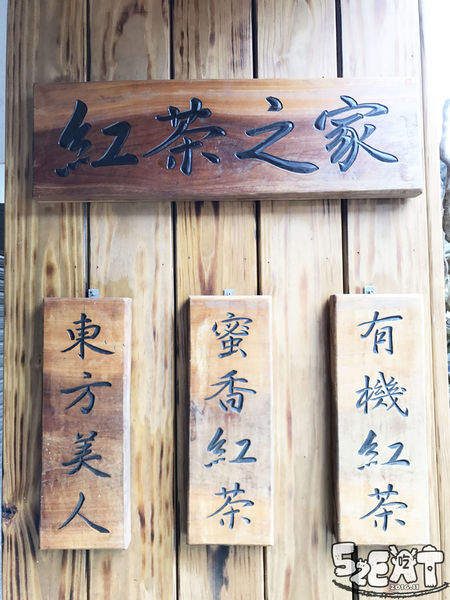 紅茶之家
有機紅茶
蜜香紅茶
東方美人
52EAT
2016.11